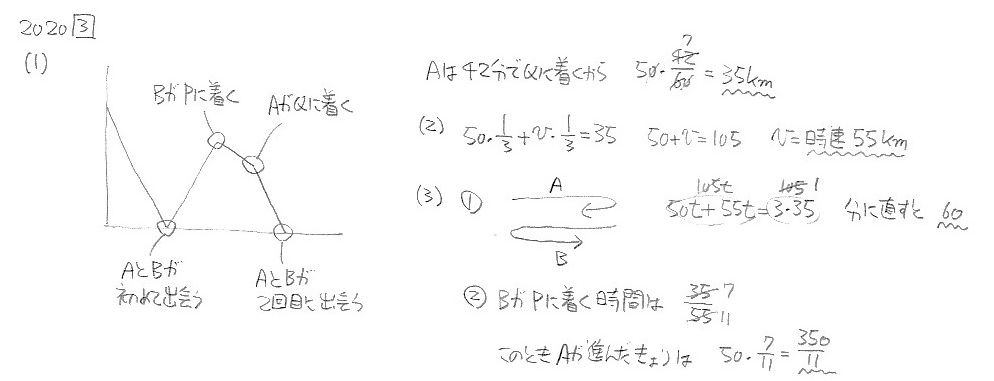 2020 3
(1)
BがPに着く
AがQに着く
AとBが
初めて出会う
AとBが
2回目に出会う
Aは42分でQに着くから 50・42/60 7 = 35km
(2) 50・1/3 + v・1/3 = 35 50+v=105 v=時速55km
(3) ① A
B
105t 105 1
50t+55t=3・35 分に直すと 60
② BがPに着く時間は 35/55 7 11
このときAが進んだきょりは 50・7/11 = 350/11